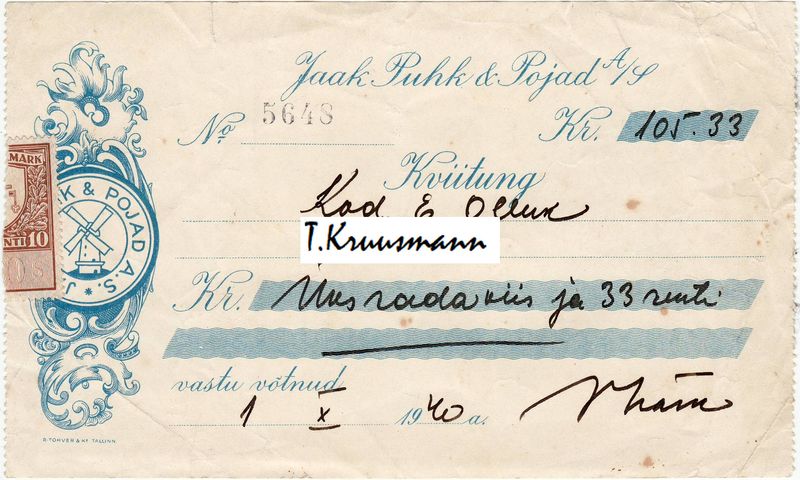 Jaak Puhk & Pojad A/S
No 5648
Kr. 105.33
Kviitung
Kod E
T.Kruusmann
MARK
NTI 10
0 s
K & POJAD A.S. * J
Kr. Üks sada viis ja 33 senti
vastu võtnud
1 X 1940 a.
R. TOHVER & Ko TALLINN